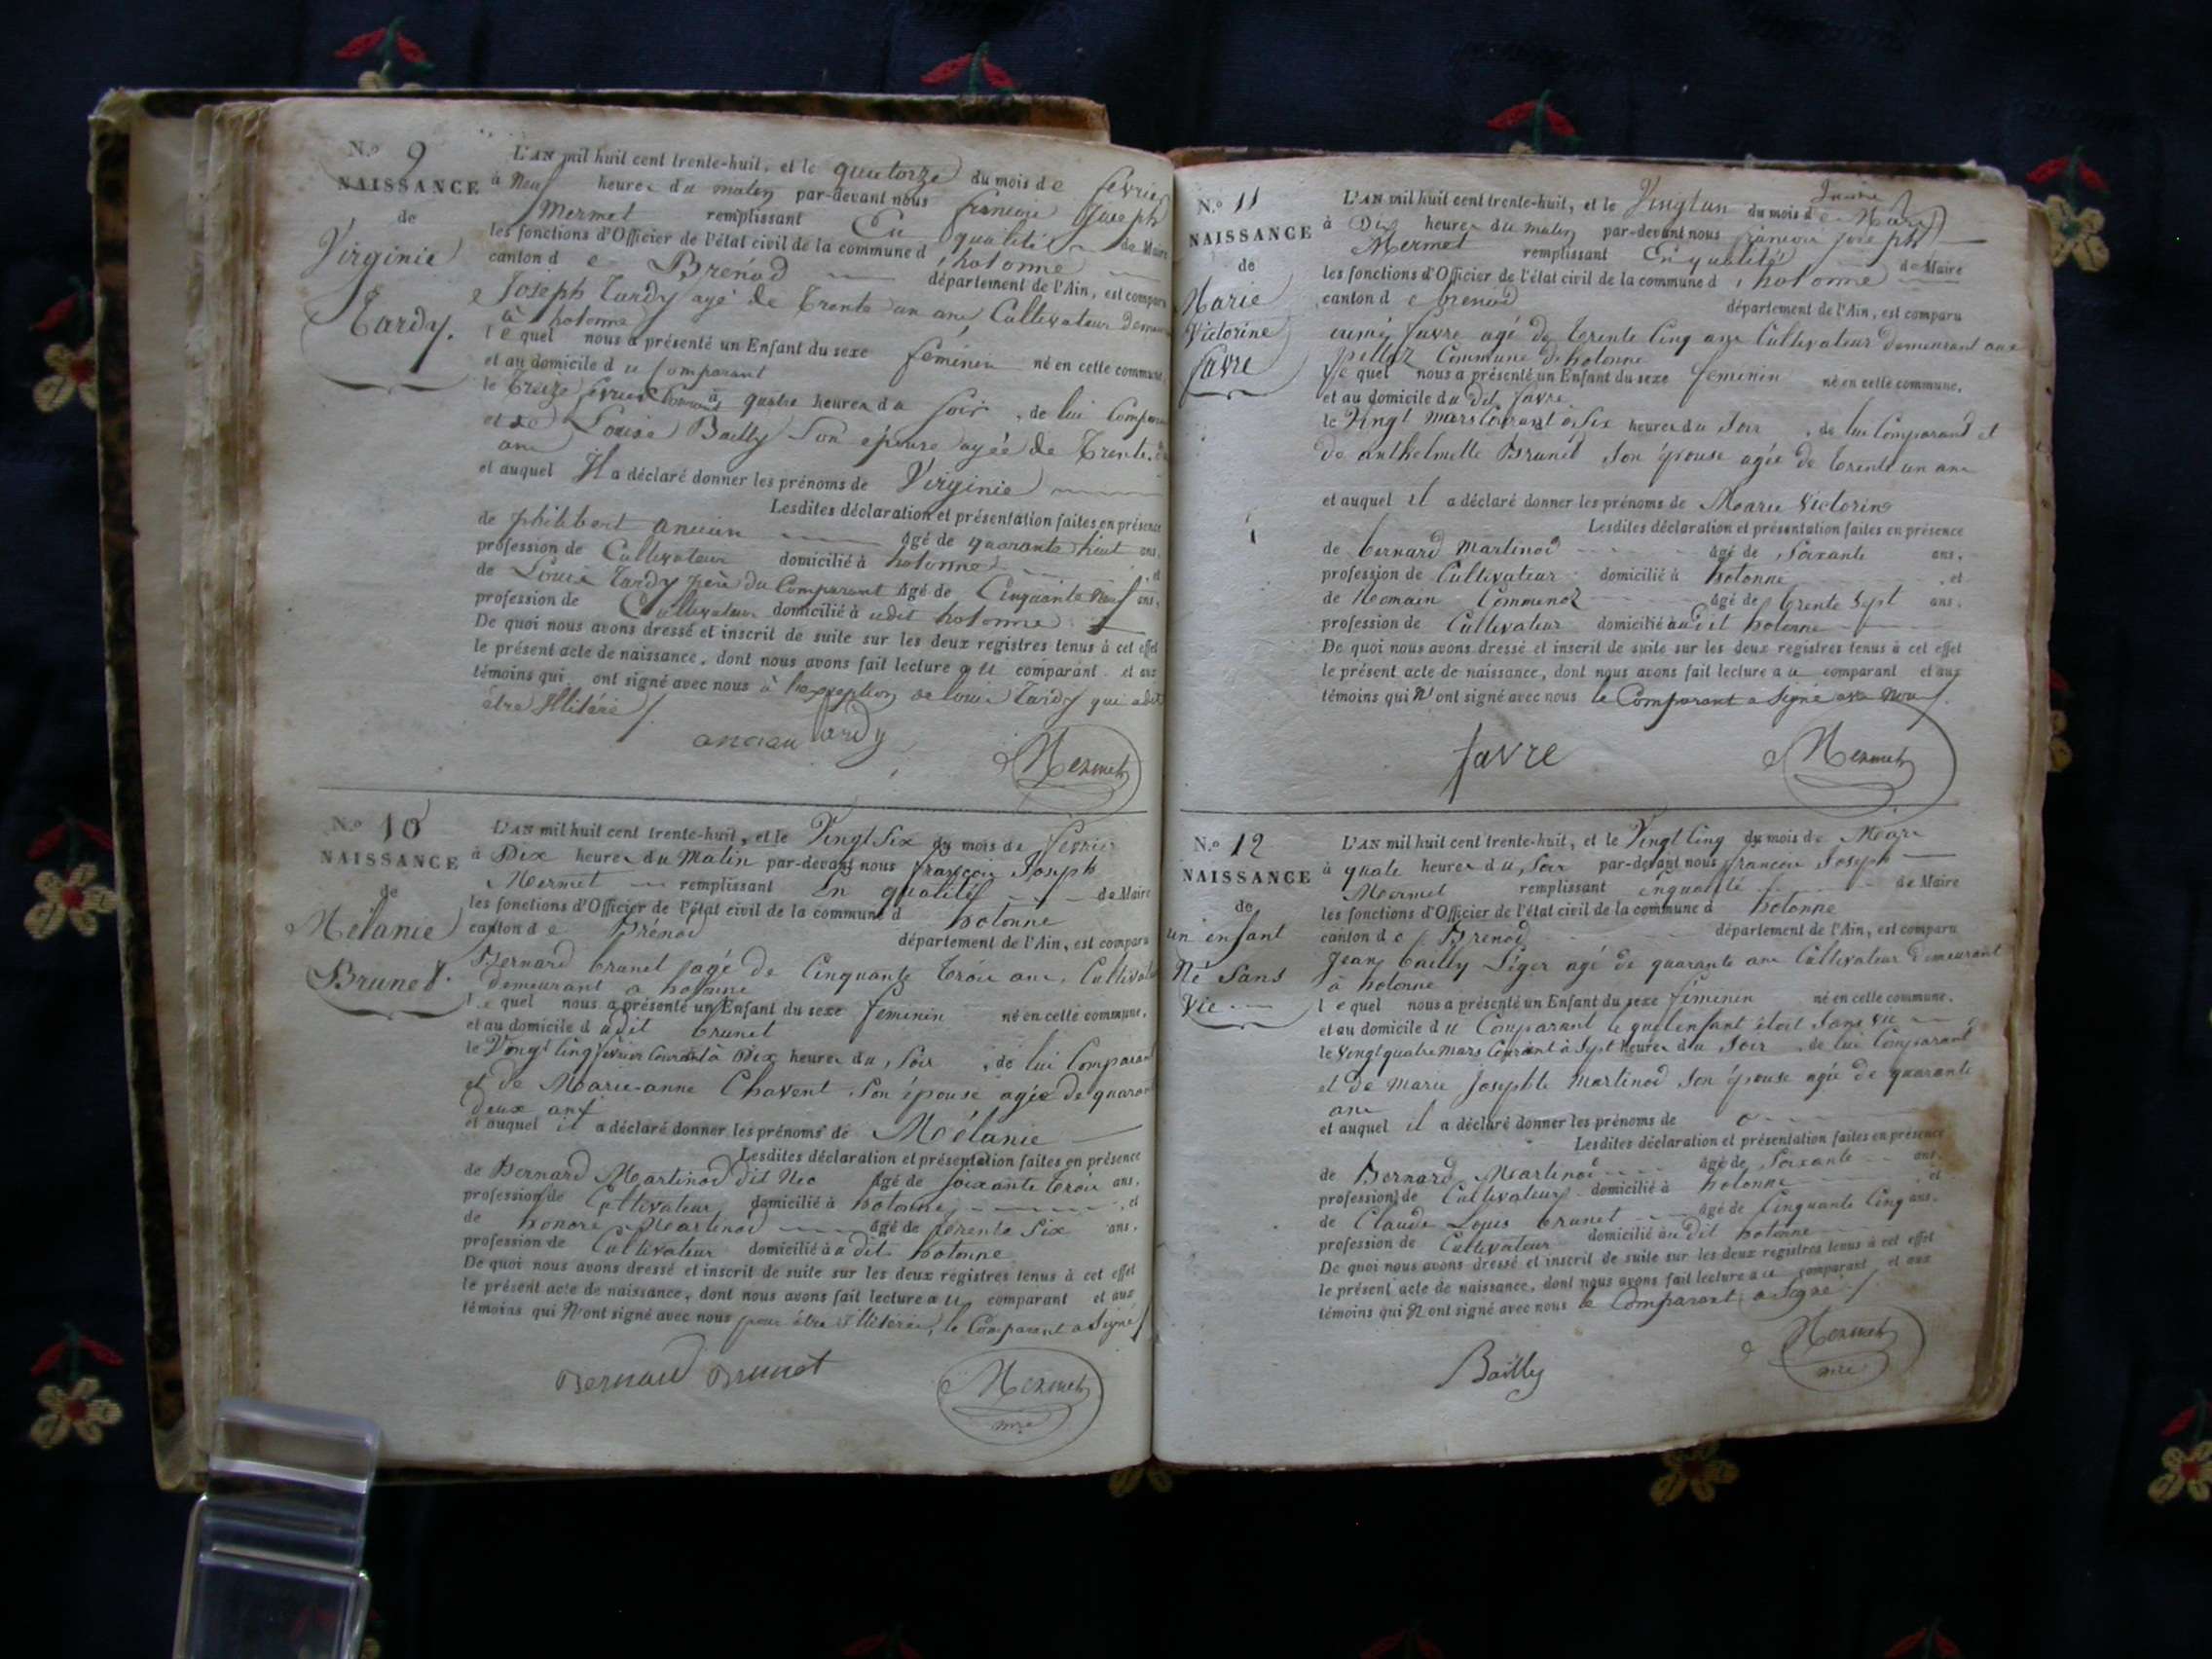 N.o 9
NAISSANCE
de
Virginie
Tardy.
L'AN mil huit cent trente-huit, et le quatorze du mois de fevrier
à neuf heures du matin par-devant nous francois Joseph
Mermet remplissant En qualité de Maire
les fonctions d'Officier de l'état civil de la commune d'hotonne
canton de Brénod département de l'Ain, est comparu
Joseph Tardy agé de trente un ans Cultivateur
à hotonne
lequel nous a présenté un Enfant du sexe féminin né en cette commune,
et au domicile du Comparant
le treize fevrier Courant à quatre heures du soir, de lui
et de Louise Bailly son épouse agée de trente
ans
et auquel Il a déclaré donner les prénoms de Virginie
Lesdites déclaration et présentation faites en présence
de philibert ancian âgé de quarante huit ans,
profession de Cultivateur domicilié à hotonne, et
de Louis Tardy père du Comparant âgé de Cinquante neuf ans,
profession de Cultivateur domicilié à udit hotonne
De quoi nous avons dressé et inscrit de suite sur les deux registres tenus à cet effet
le présent acte de naissance, dont nous avons fait lecture au comparant et aux
témoins qui ont signé avec nous à l'exception de louis Tardy qui a dit
être Illitéré
ancian tardy Mermet
N.o 10
NAISSANCE
de
Mélanie
Brunet.
L'AN mil huit cent trente-huit, et le Vingt Six du mois de février
à Dix heures du Matin par-devant nous françois Joseph
Mermet remplissant En qualité de Maire
les fonctions d'Officier de l'état civil de la commune d hotonne
canton de Brénod département de l'Ain, est comparu
Bernard brunet agé de Cinquante trois ans,
demeurant a hotonne
lequel nous a présenté un Enfant du sexe féminin né en cette commune,
et au domicile dudit brunet
le Vingt Cinq février Courant à Dix heures du soir, de lui Comparant
et de Marie-anne Chavent son épouse agée de
deux ans
et auquel il a déclaré donner les prénoms de Mélanie
Lesdites déclaration et présentation faites en présence
de Bernard Martinod dit âgé de soixante trois ans,
profession de Cultivateur domicilié à hotonne, et
de honoré Martinod âgé de trente Six ans,
profession de Cultivateur domicilié à udit hotonne
De quoi nous avons dressé et inscrit de suite sur les deux registres tenus à cet effet
le présent acte de naissance, dont nous avons fait lecture au comparant et aux
témoins qui N'ont signé avec nous pour être illiterés, le Comparant a Signé
Bernard Brunet Mermet
mre
N.o 11
NAISSANCE
de
Marie
Victorine
favre
L'AN mil huit cent trente-huit, et le Vingt un du mois de Mars
à Dix heures du matin par-devant nous françois joseph
Mermet remplissant En qualité de Maire
les fonctions d'Officier de l'état civil de la commune d'hotonne
canton de brenod département de l'Ain, est comparu
aimé favre agé de trente Cinq ans Cultivateur demeurant aux
Commune d'hotonne
lequel nous a présenté un Enfant du sexe féminin né en cette commune,
et au domicile du dit favre
le Vingt mars Courant à Six heures du Soir, de lui Comparant et
de anthelmette Brunet son épouse agée de trente un ans
et auquel il a déclaré donner les prénoms de Marie Victorine
Lesdites déclaration et présentation faites en présence
de bernard Martinod âgé de Soixante ans,
profession de Cultivateur domicilié à hotonne, et
de Romain âgé de trente Sept ans,
profession de Cultivateur domicilié audit hotonne
De quoi nous avons dressé et inscrit de suite sur les deux registres tenus à cet effet
le présent acte de naissance, dont nous avons fait lecture au comparant et aux
témoins qui N'ont signé avec nous le Comparant a Signé avec nous
favre Mermet
N.o 12
NAISSANCE
de
un enfant
Né Sans
Vie
L'AN mil huit cent trente-huit, et le Vingt Cinq du mois de Mars
à quatre heures du Soir par-devant nous françois Joseph
Mermet remplissant enqualité de Maire
les fonctions d'Officier de l'état civil de la commune d hotonne
canton de Brenod département de l'Ain, est comparu
Jean bailly Léger agé de quarante ans Cultivateur demeurant
à hotonne
lequel nous a présenté un Enfant du sexe féminin né en cette commune,
et au domicile du Comparant le quel enfant étoit Sans vie
le vingt quatre mars Courant à Sept heures du Soir, de lui Comparant
et de marie Josephte Martinod son épouse agée de quarante
ans
et auquel il a déclaré donner les prénoms de
Lesdites déclaration et présentation faites en présence
de Bernard Martinod âgé de Soixante ans,
profession de Cultivateur domicilié à hotonne, et
de Claude Louis brunet âgé de Cinquante Cinq ans,
profession de Cultivateur domicilié audit hotonne
De quoi nous avons dressé et inscrit de suite sur les deux registres tenus à cet effet
le présent acte de naissance, dont nous avons fait lecture au comparant et aux
témoins qui N'ont signé avec nous le Comparant a Signé
Bailly Mermet
mre